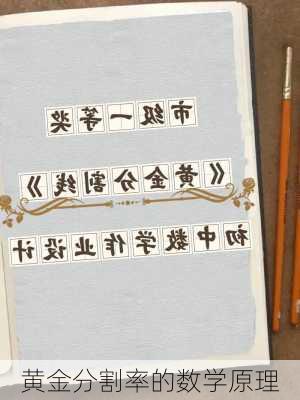 市级一等奖
《黄金分割线》
初中数学作业设计
黄金分割率的数学原理